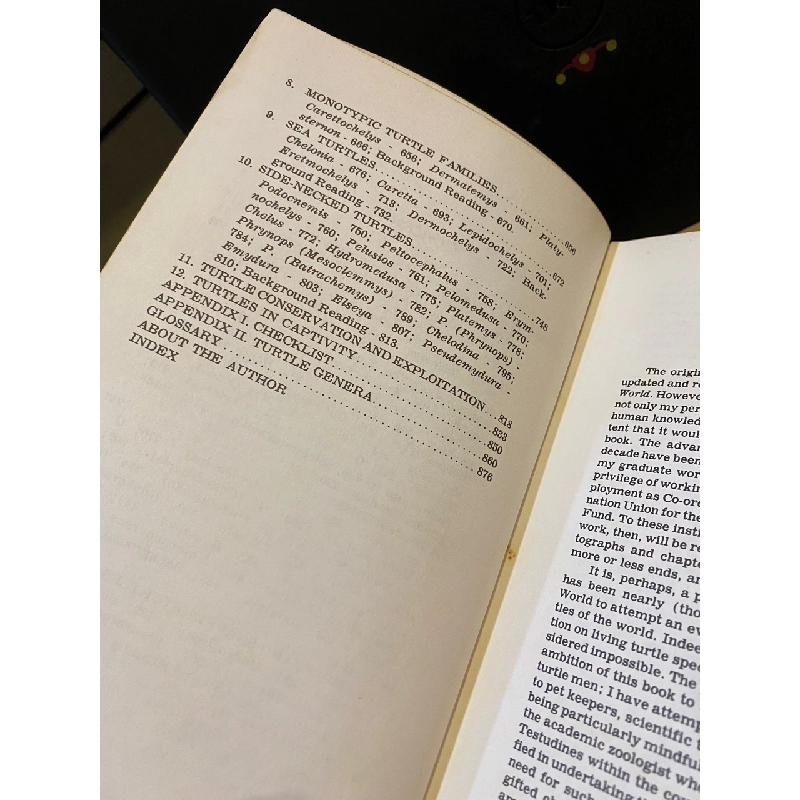 8. MONOTYPIC TURTLE FAMILIES.............656
Carettochelys - 656; Dermatemys - 661; Platy-
sternon - 666; Background Reading - 670.
9. SEA TURTLES.............672
Chelonia - 676; Caretta - 693; Lepidochelys - 701;
Eretmochelys - 713; Dermochelys - 722; Back-
ground Reading - 732.
10. SIDE-NECKED TURTLES.............748
Podocnemis - 750; Peltocephalus - 758; Erym-
nochelys - 760; Pelusios - 761; Pelomedusa - 770;
Chelus - 772; Hydromedusa - 775; Platemys - 778;
Phrynops (Mesoclemmys) - 782; P. (Phrynops) -
784; P. (Batrachemys) - 789; Chelodina - 795;
Emydura - 803; Elseya - 807; Pseudemydura -
810; Background Reading - 813.
11. TURTLE CONSERVATION AND EXPLOITATION...818
12. TURTLES IN CAPTIVITY.............833
APPENDIX I. CHECKLIST.............850
APPENDIX II. TURTLE GENERA.............860
GLOSSARY.............876
ABOUT THE AUTHOR
INDEX
The origin
updated and re
World. Howeve
not only my per
human knowled
tent that it woul
book. The advan
decade have been
my graduate wor
privilege of workin
ployment as Co-ord
nation Union for the
Fund. To these insti
work, then, will be re
tographs and chapte
more or less ends, an
It is, perhaps, a p
has been nearly (tho
World to attempt an ev
ties of the world. Indee
tion on living turtle spec
sidered impossible. The
ambition of this book to
turtle men; I have attemp
to pet keepers, scientific t
being particularly mindfu
the academic zoologist who
Testudines within the con
fied in undertaking th
need for such
gifted